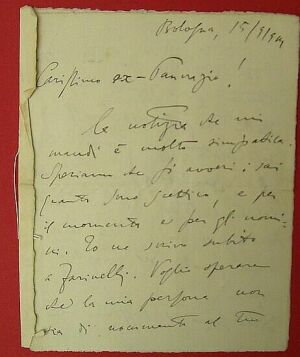 Bologna, 15/9/914
Carissimo ex-Pancrazio!
la notizia che mi
mandi è molto simpatica.
Speriamo che si avveri: sai
quanto sono scettico, e per
il momento e per gli uomi-
ni. Io ne scrivo subito
a Farinelli. Voglio sperare
che la mia persona non
sia di nocumento al tuo